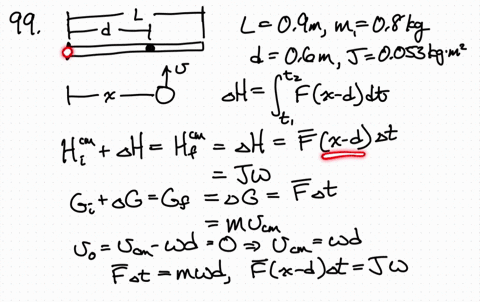 99.
L
d
x
v
L=0.9m, m₁=0.8kg
d=0.6m, J=0.053kg·m²
ΔH=∫_{t₁}^{t₂} F(x-d)dt
H_i^{cm}+ΔH=H_f^{cm}=ΔH=F̄(x-d)Δt
=Jω
G_i+ΔG=G_f=ΔG=F̄Δt
=mv_{cm}
v₀=v_{cm}-ωd=0⇒v_{cm}=ωd
F̄Δt=mωd, F̄(x-d)Δt=Jω